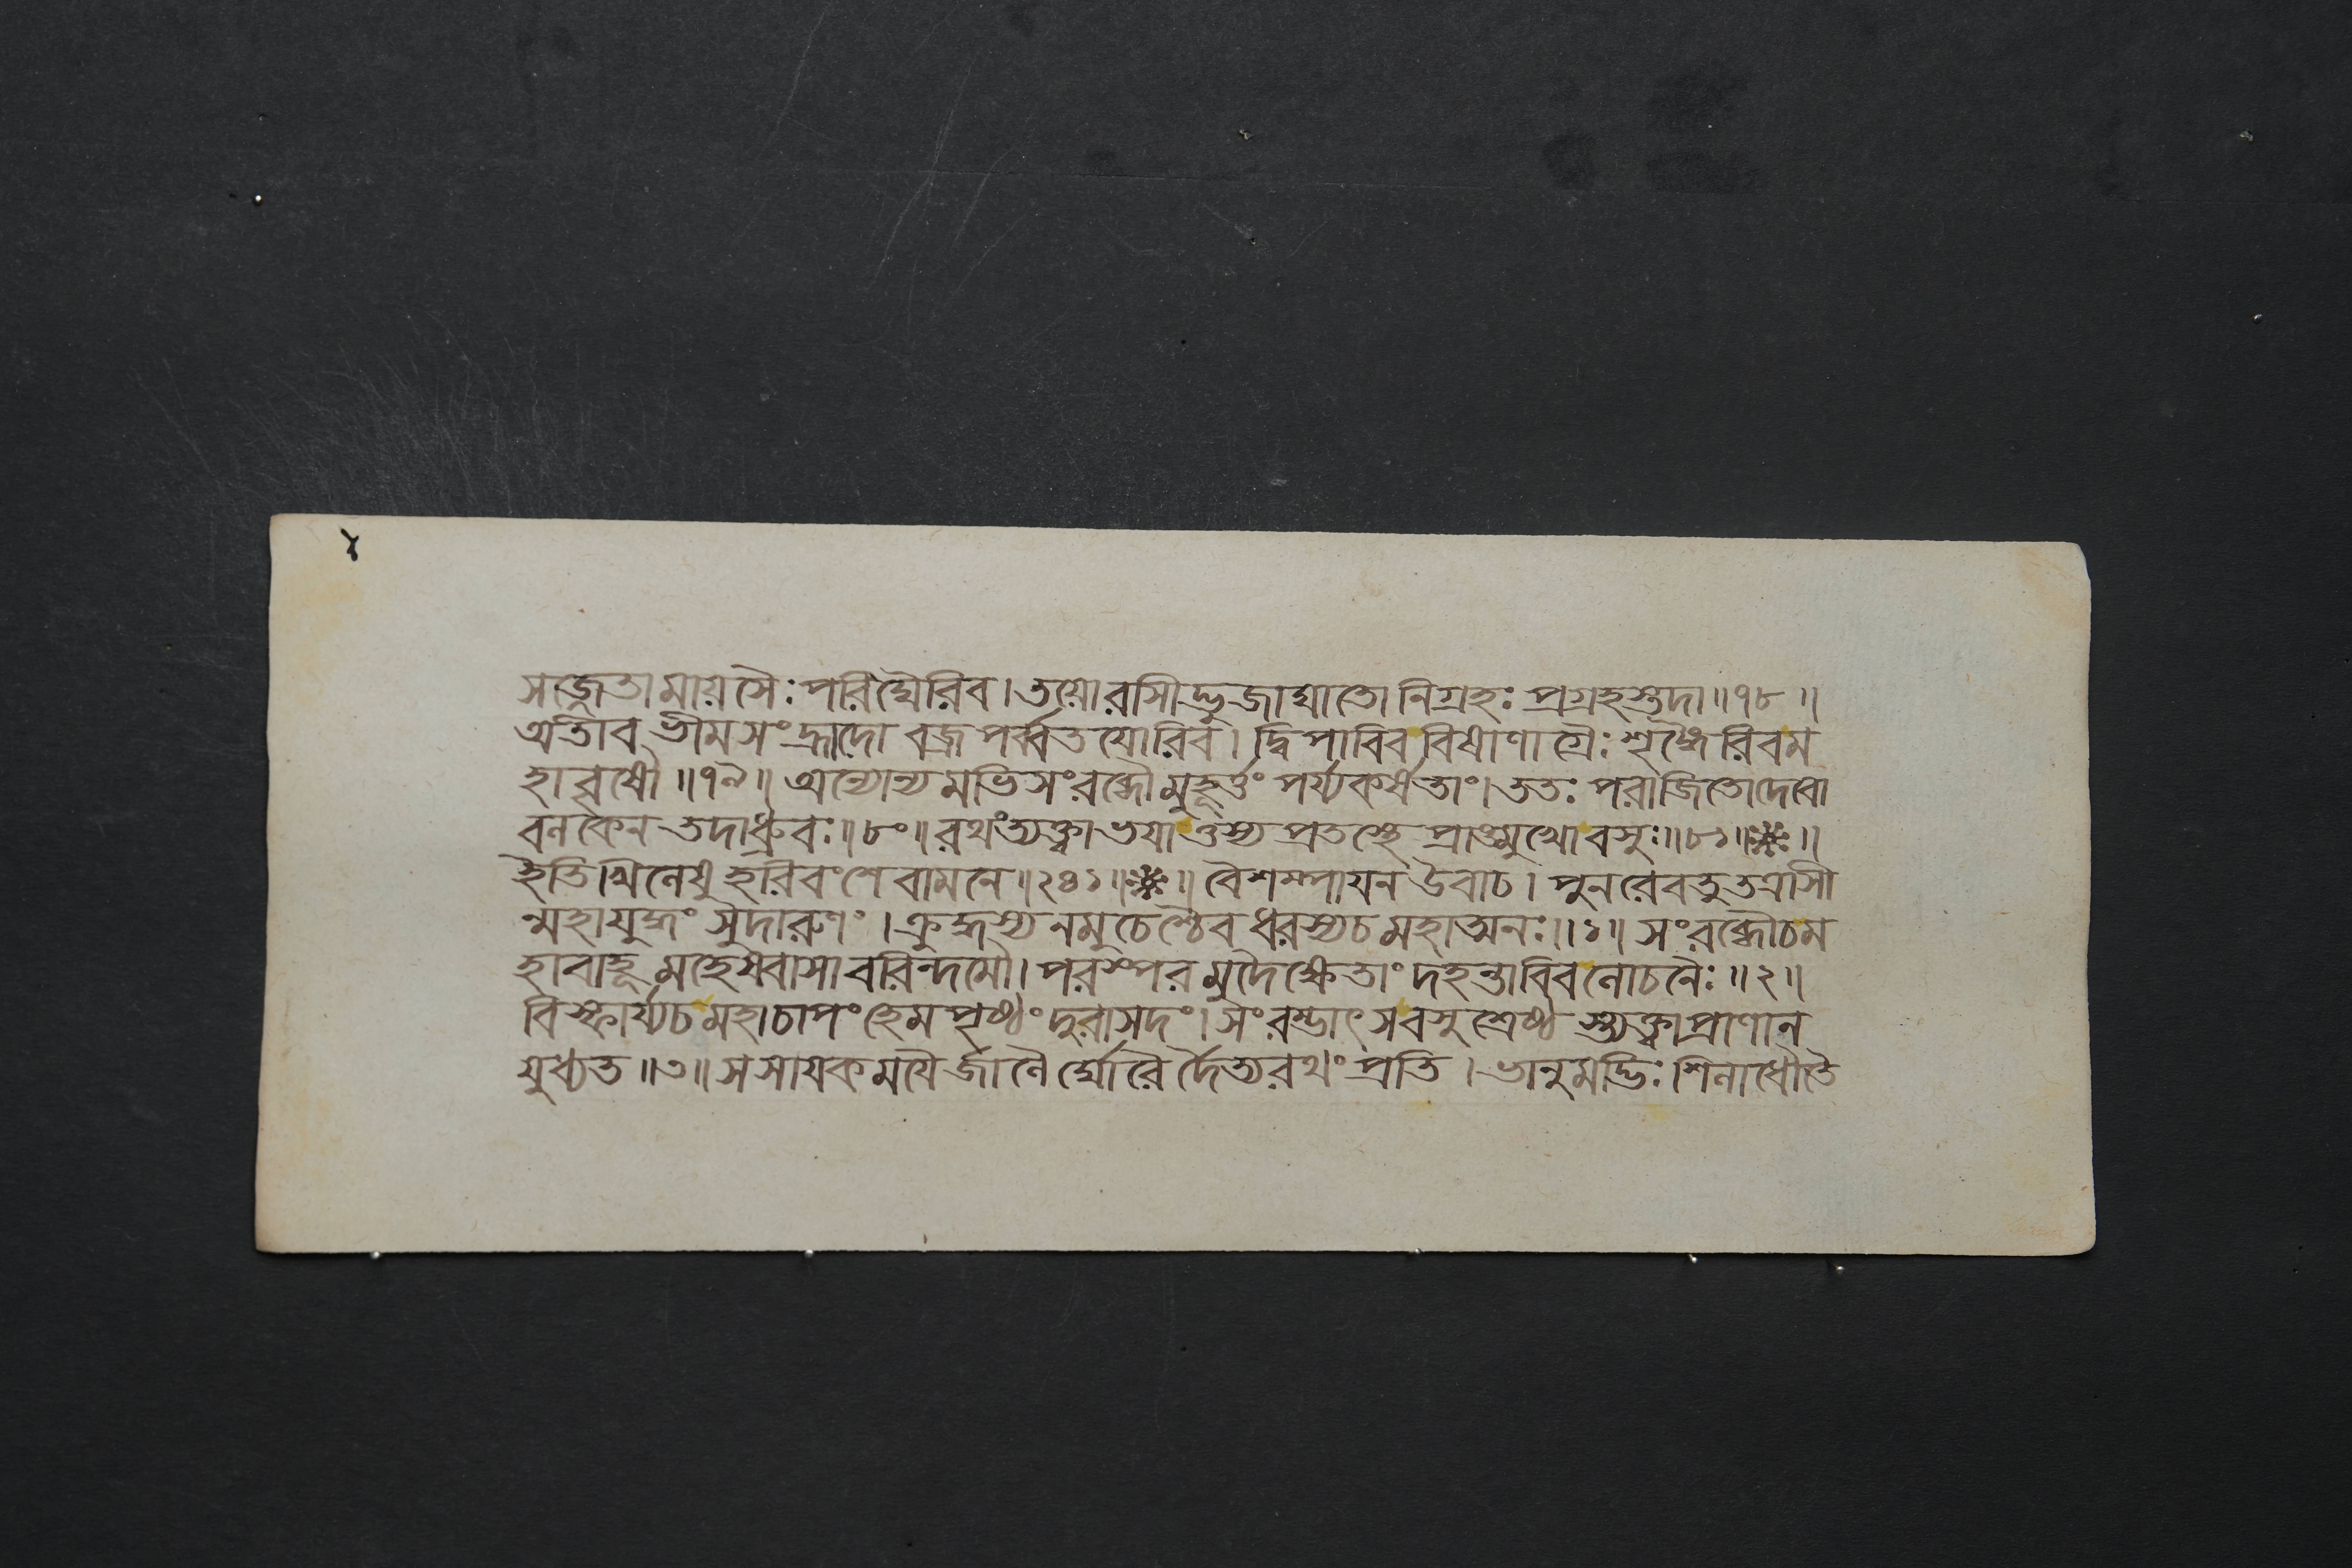 ৪
সজ্জেতামায়সৈঃপরিঘৈরিব।তয়োরাসীদ্ভুজাঘাতো নিগ্রহঃ প্রগ্রহস্তদা॥৭৮॥
অতীব ভীমসংহ্রাদো বজ্রপর্ব্বতযোরিব। দ্বিপাবিববিষাণাগ্রৈঃশৃঙ্গৈরিবম
হাবৃষৌ॥৭৯॥ অন্যোন্যমভিসংরব্ধৌমুহূর্ত্তং পর্য্যকর্ষতাং।ততঃ পরাজিতোদেবো
বলকেন তদাধ্রুবঃ॥৮০॥ রথংত্যক্ত্বাভযাত্তস্য প্রতস্থে প্রাঙ্মুখোবসুঃ॥৮১॥❈॥
ইতিখিলেষু হরিবংশে বামনে॥২৪১॥❈॥ বৈশম্পাযন উবাচ। পুনরেবতুতত্রাসী
ন্মহাযুদ্ধং সুদারুণং। ক্রুদ্ধস্য নমুচেশ্চৈব ধরস্যচমহাত্মনঃ॥১॥ সংরব্ধৌচম
হাবাহূ মহেষবাসাবরিন্দমৌ। পরস্পরমুদৈক্ষেতাং দহন্তাবিবলোচনৈঃ॥২॥
বিস্ফার্য্যচমহাচাপং হেমপৃষ্ঠং দুরাসদং। সংরম্ভাৎ সবসুশ্রেষ্ঠ স্ত্যক্ত্বাপ্রাণান
যুধ্যত॥৩॥ সসাযকমযৈর্জালৈ র্ঘোরৈ র্দৈত্যরথং প্রতি। ভানুমদ্ভিঃ শিলাধৌতৈ